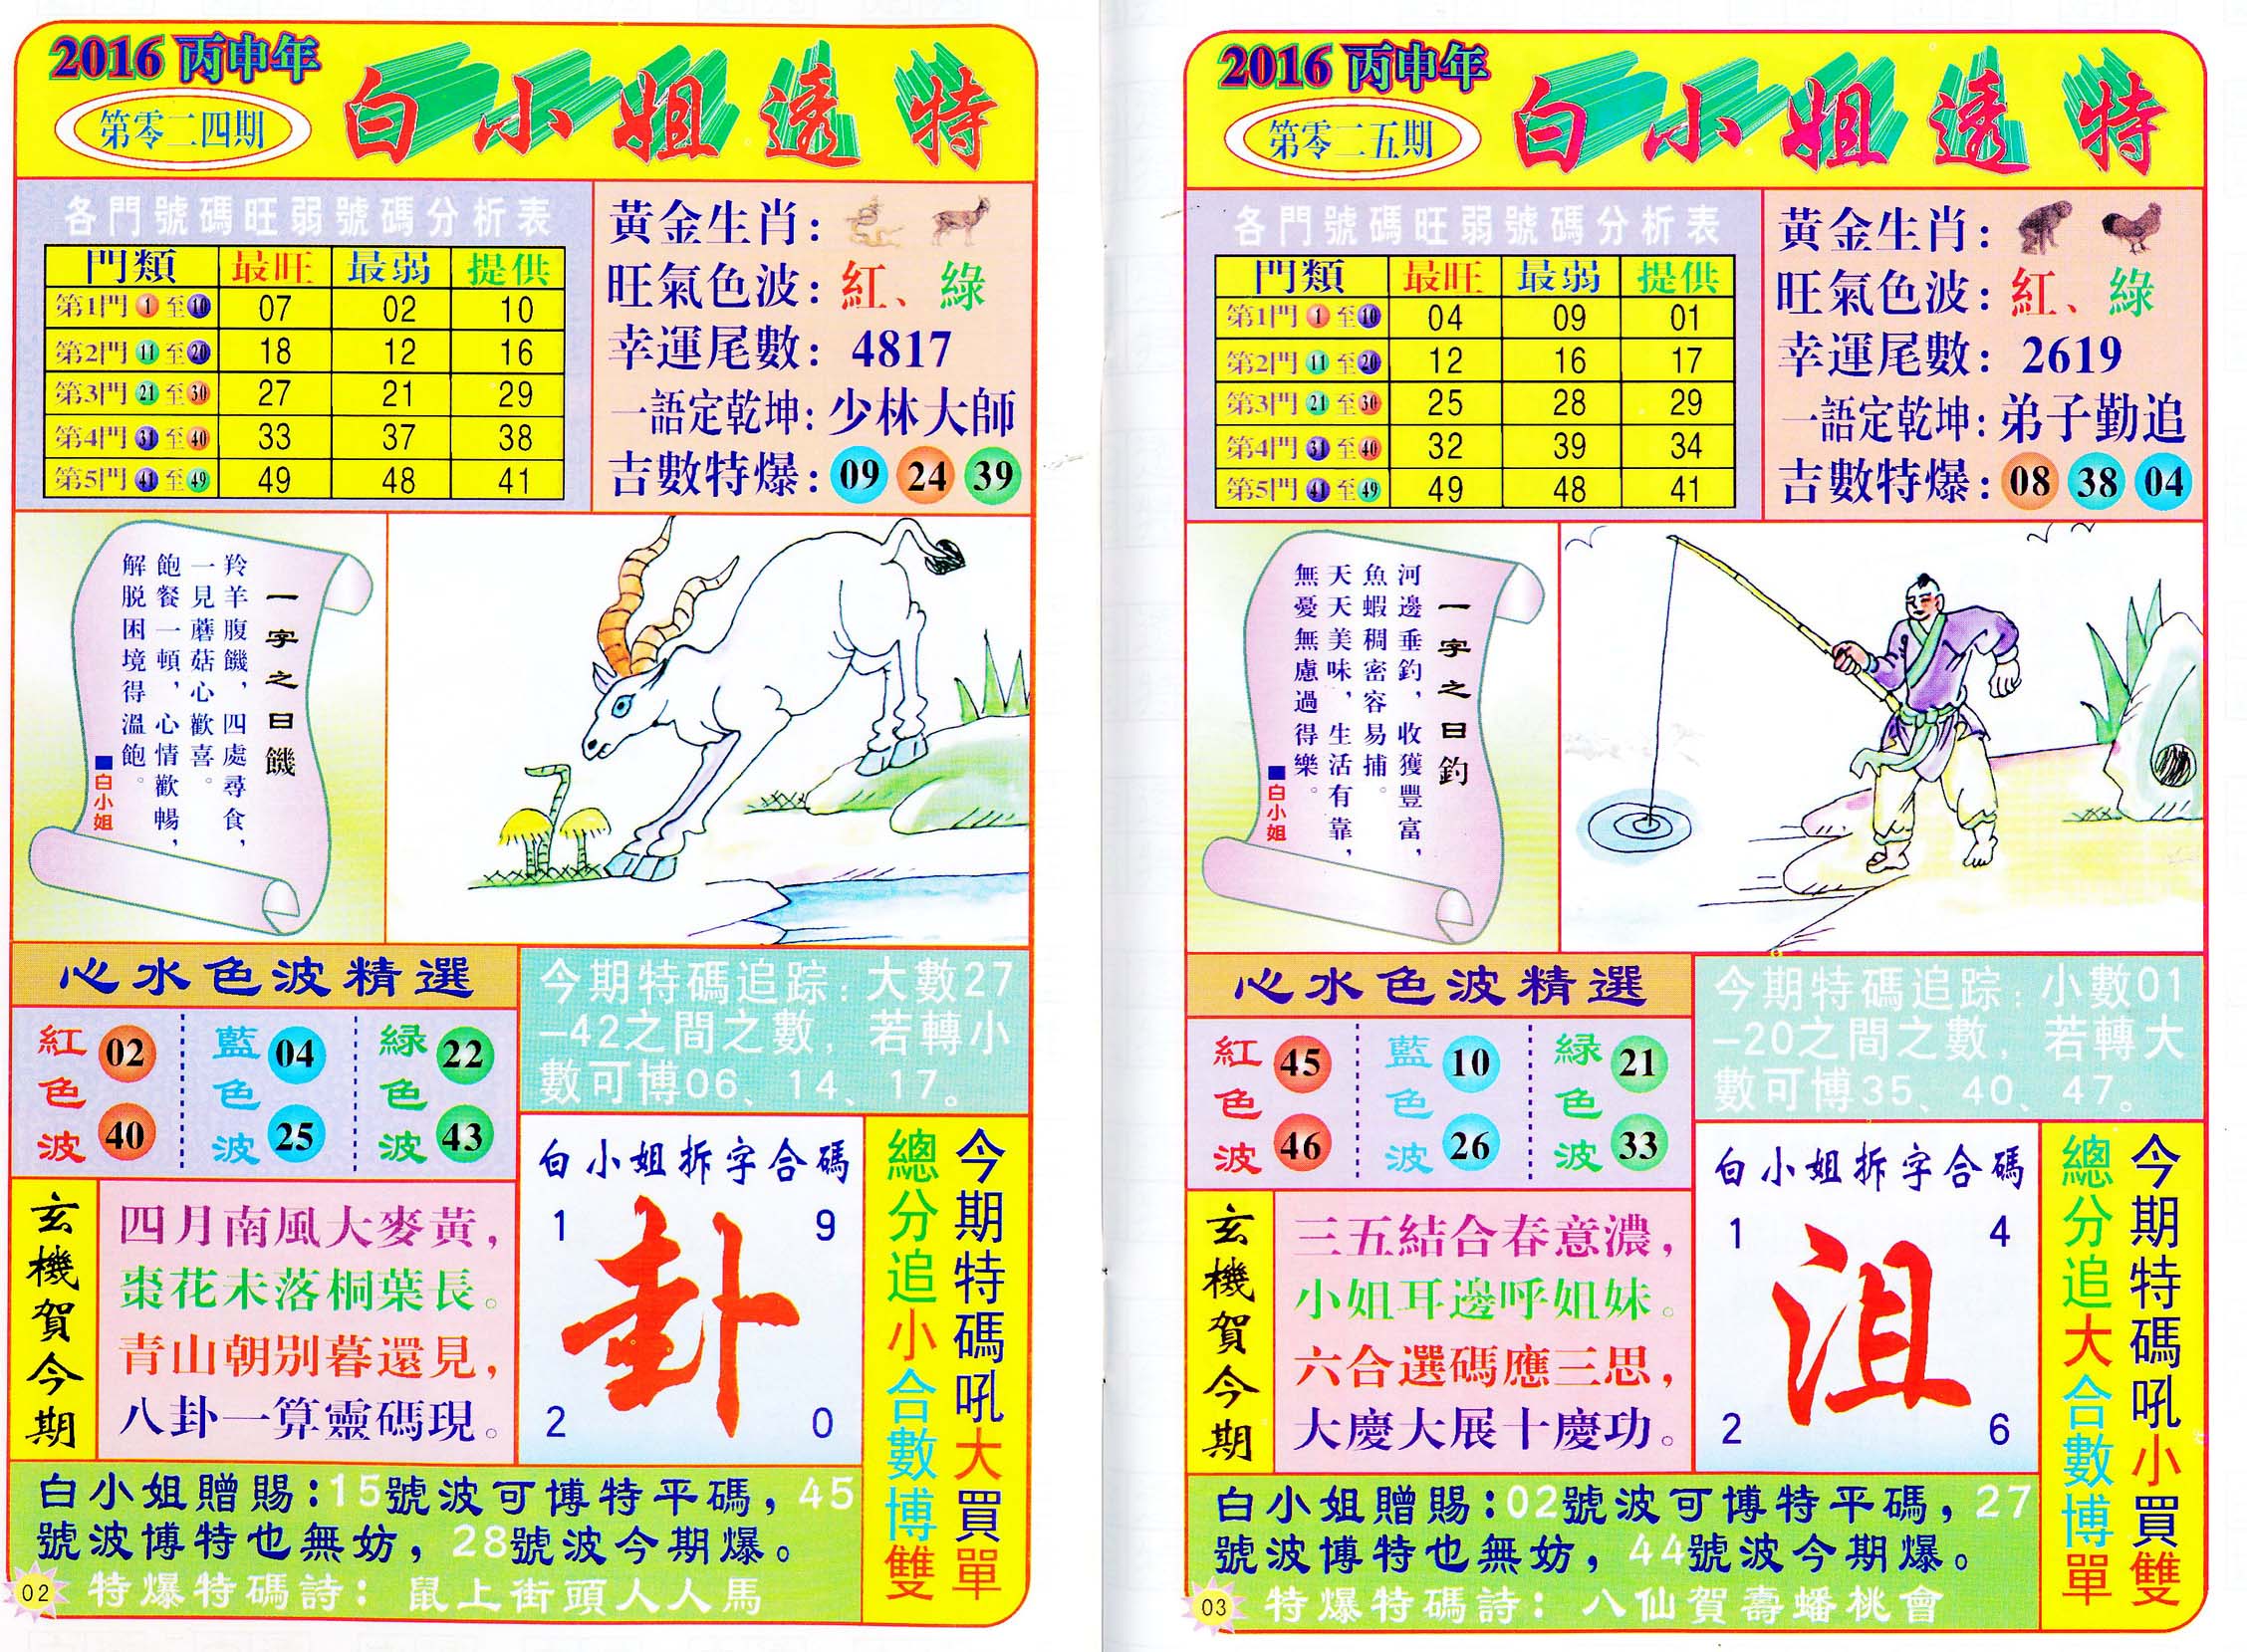 2016 丙申年
第零二四期
白小姐透特
各門號碼旺弱號碼分析表
門類 最旺 最弱 提供
第1門 1 至 10 07 02 10
第2門 11 至 20 18 12 16
第3門 21 至 30 27 21 29
第4門 31 至 40 33 37 38
第5門 41 至 49 49 48 41
黃金生肖：
旺氣色波：紅、綠
幸運尾數：4817
一語定乾坤：少林大師
吉數特爆：09 24 39
一字之曰饑
羚羊腹饑，四處尋食，
一見蘑菇心歡喜。
飽餐一頓，心情歡暢，
解脱困境得溫飽。
■白小姐
心水色波精選
紅色波 02 40
藍色波 04 25
綠色波 22 43
今期特碼追踪：大數27
-42之間之數，若轉小
數可博06、14、17。
玄機賀今期
四月南風大麥黃，
棗花未落桐葉長。
青山朝别暮還見，
八卦一算靈碼現。
白小姐拆字合碼
1 9
卦
2 0
今期特碼吼大買單
總分追小合數博雙
白小姐贈賜：15號波可博特平碼，45
號波博特也無妨，28號波今期爆。
特爆特碼詩：鼠上街頭人人馬
02
2016 丙申年
第零二五期
白小姐透特
各門號碼旺弱號碼分析表
門類 最旺 最弱 提供
第1門 1 至 10 04 09 01
第2門 11 至 20 12 16 17
第3門 21 至 30 25 28 29
第4門 31 至 40 32 39 34
第5門 41 至 49 49 48 41
黃金生肖：
旺氣色波：紅、綠
幸運尾數：2619
一語定乾坤：弟子勤追
吉數特爆：08 38 04
一字之曰釣
河邊垂釣，收獲豐富，
魚蝦稠密容易捕。
天天美味，生活有靠，
無憂無慮過得樂。
■白小姐
心水色波精選
紅色波 45 46
藍色波 10 26
綠色波 21 33
今期特碼追踪：小數01
-20之間之數 若轉大
數可博35、40、47。
玄機賀今期
三五結合春意濃，
小姐耳邊呼姐妹。
六合選碼應三思，
大慶大展十慶功。
白小姐拆字合碼
1 4
沮
2 6
今期特碼吼小買雙
總分追大合數博單
白小姐贈賜：02號波可博特平碼，27
號波博特也無妨，44號波今期爆。
特爆特碼詩：八仙賀壽蟠桃會
03